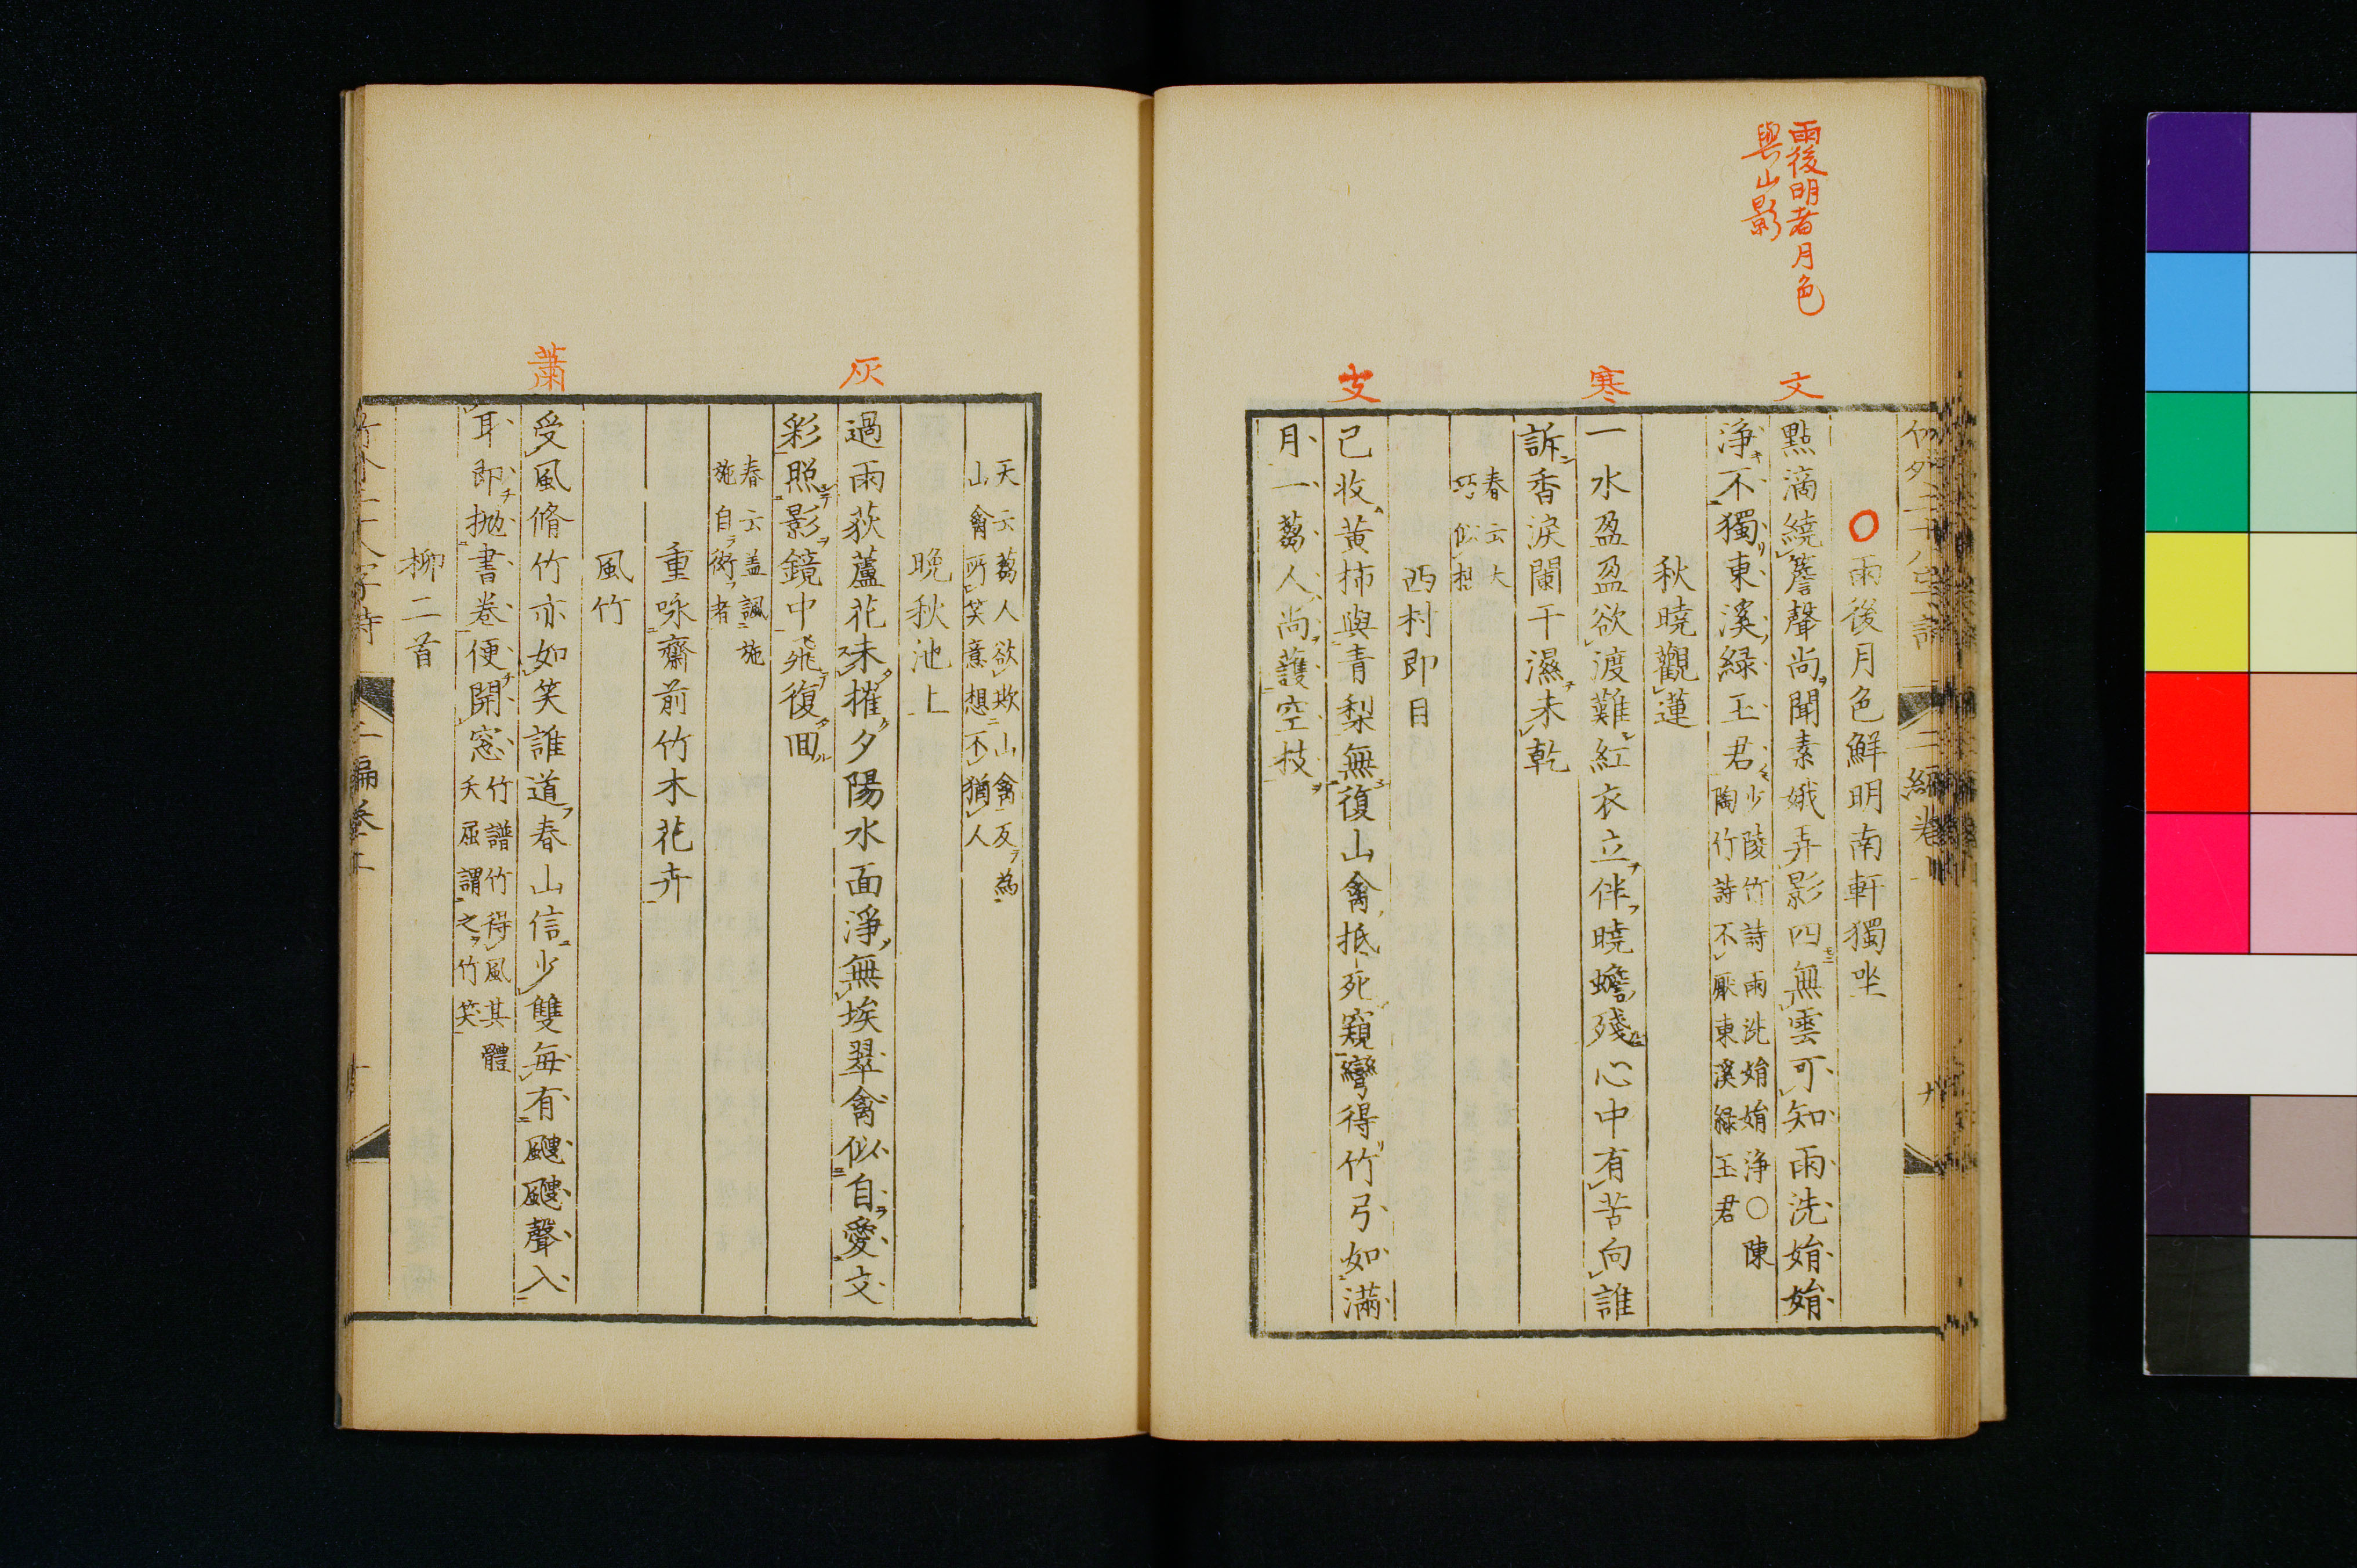 雨後明者月色
與山影
文
寒
支
雨後月色鮮明南軒獨坐
點滴繞簷聲尚聞素娥弄影四無雲可知雨洗娟娟
淨不獨東溪綠玉君
少陵竹詩雨洗娟娟淨○陳
陶竹詩不厭東溪綠玉君
秋曉觀蓮
一水盈盈欲渡難紅衣立伴曉蟾殘心中有苦向誰
訴香淚闌干濕未乾
春云大
巧似想
西村即目
已收黃柿與青梨無復山禽抵死窺彎得竹弓如滿
月一芻人尚護空枝
灰
蕭
天云芻人欲欺山禽反為
山禽所笑意想不猶人
晚秋池上
過雨荻蘆花未摧夕陽水面淨無埃翠禽似自愛文
彩照影鏡中飛復回
春云蓋諷施
施自衒者
重咏齋前竹木花卉
風竹
受風脩竹亦如笑誰道春山信少雙每有颼颼聲入
耳即抛書卷便開窓
竹譜竹得風其體
夭屈謂之竹笑
柳二首